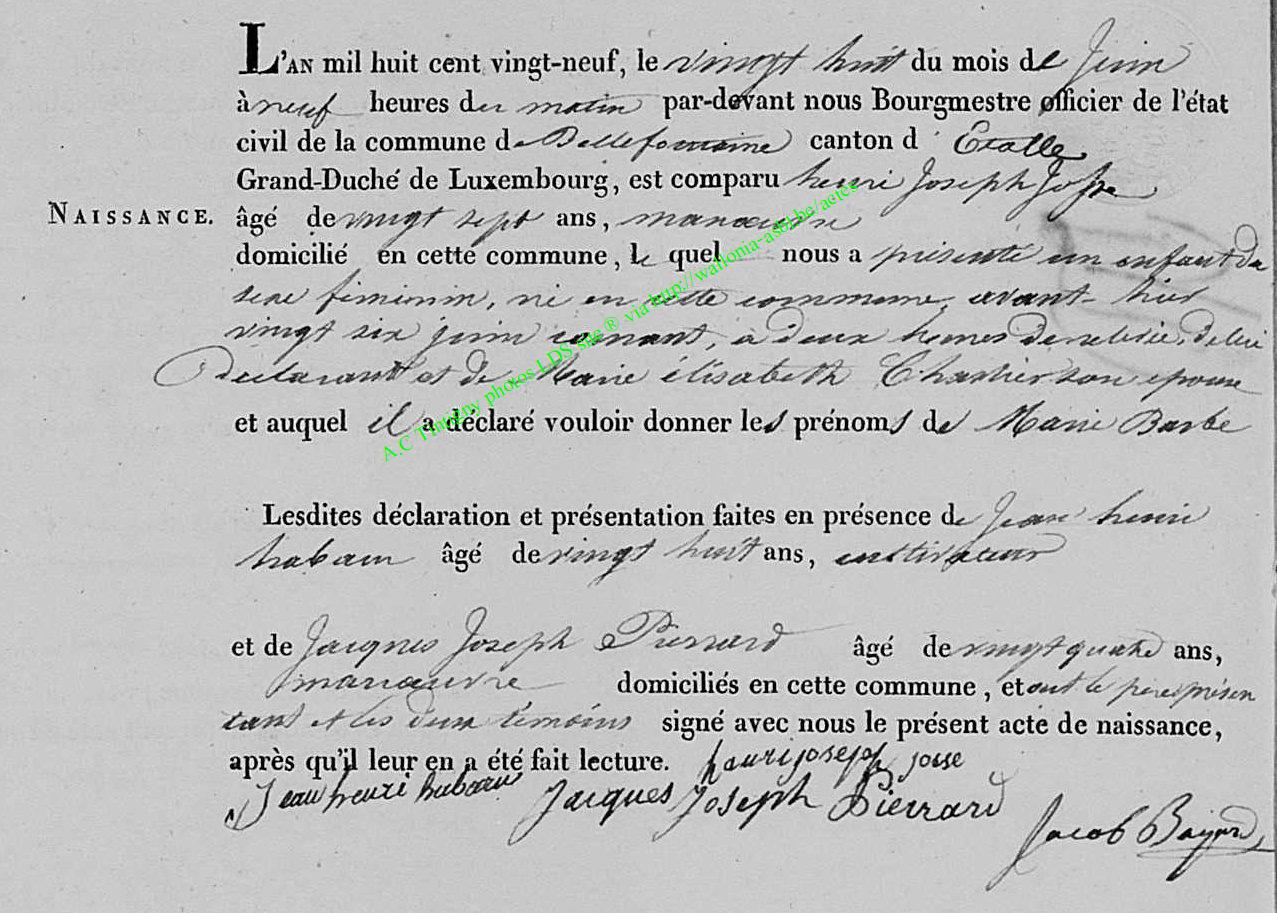 L'AN mil huit cent vingt-neuf, le vingt huit du mois de Juin
à neuf heures du matin par-devant nous Bourgmestre officier de l'état
civil de la commune de Bellefontaine canton d'Etalle
Grand-Duché de Luxembourg, est comparu henri Joseph Josse
NAISSANCE. âgé de vingt sept ans, manœuvre
domicilié en cette commune, le quel nous a présenté un enfant du
sexe féminin, né en cette commune, avant-hier
vingt six juin courant, à deux heures de relevée, de lui
Déclarant et de Marie élisabeth Charlier son epouse
et auquel il a déclaré vouloir donner les prénoms de Marie Barbe
A.C Tintigny photos LDS site ® via http://wallonia-asbl.be/actes
Lesdites déclaration et présentation faites en présence de Jean henri
habaru âgé de vingt huit ans, instituteur
et de Jacques Joseph Pierrard âgé de vingt quatre ans,
manœuvre domiciliés en cette commune, et ont le père présen
tant et les deux témoins signé avec nous le présent acte de naissance,
après qu'il leur en a été fait lecture. hanri joseph josse
Jean henri habaru Jacques Joseph Pierrard
Jacob